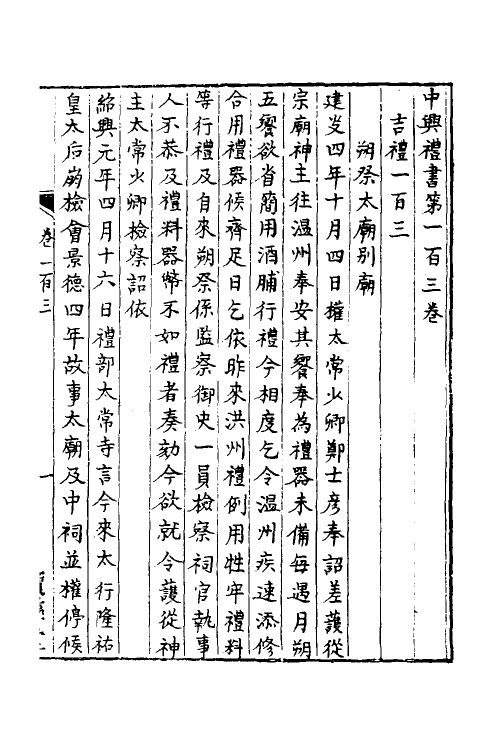 中興禮書第一百三卷
吉禮一百三
朔祭太廟别廟
建炎四年十月四日權太常少卿鄭士彦奉詔差護從
宗廟神主往温州奉安其饗奉為禮器未備每遇月朔
五饗欲省簡用酒脯行禮今相度乞令温州疾速添修
合用禮器候齊足日乞依昨來洪州禮例用牲牢禮料
等行禮及自來朔祭係監察御史一員檢察祠官執事
人不恭及禮料器幣不如禮者奏劾今欲就令護從神
主太常少卿檢察詔依
紹興元年四月十六日禮部太常寺言今來太行隆祐
皇太后崩檢會景德四年故事太廟及中祠並權停候
卷一百三
一